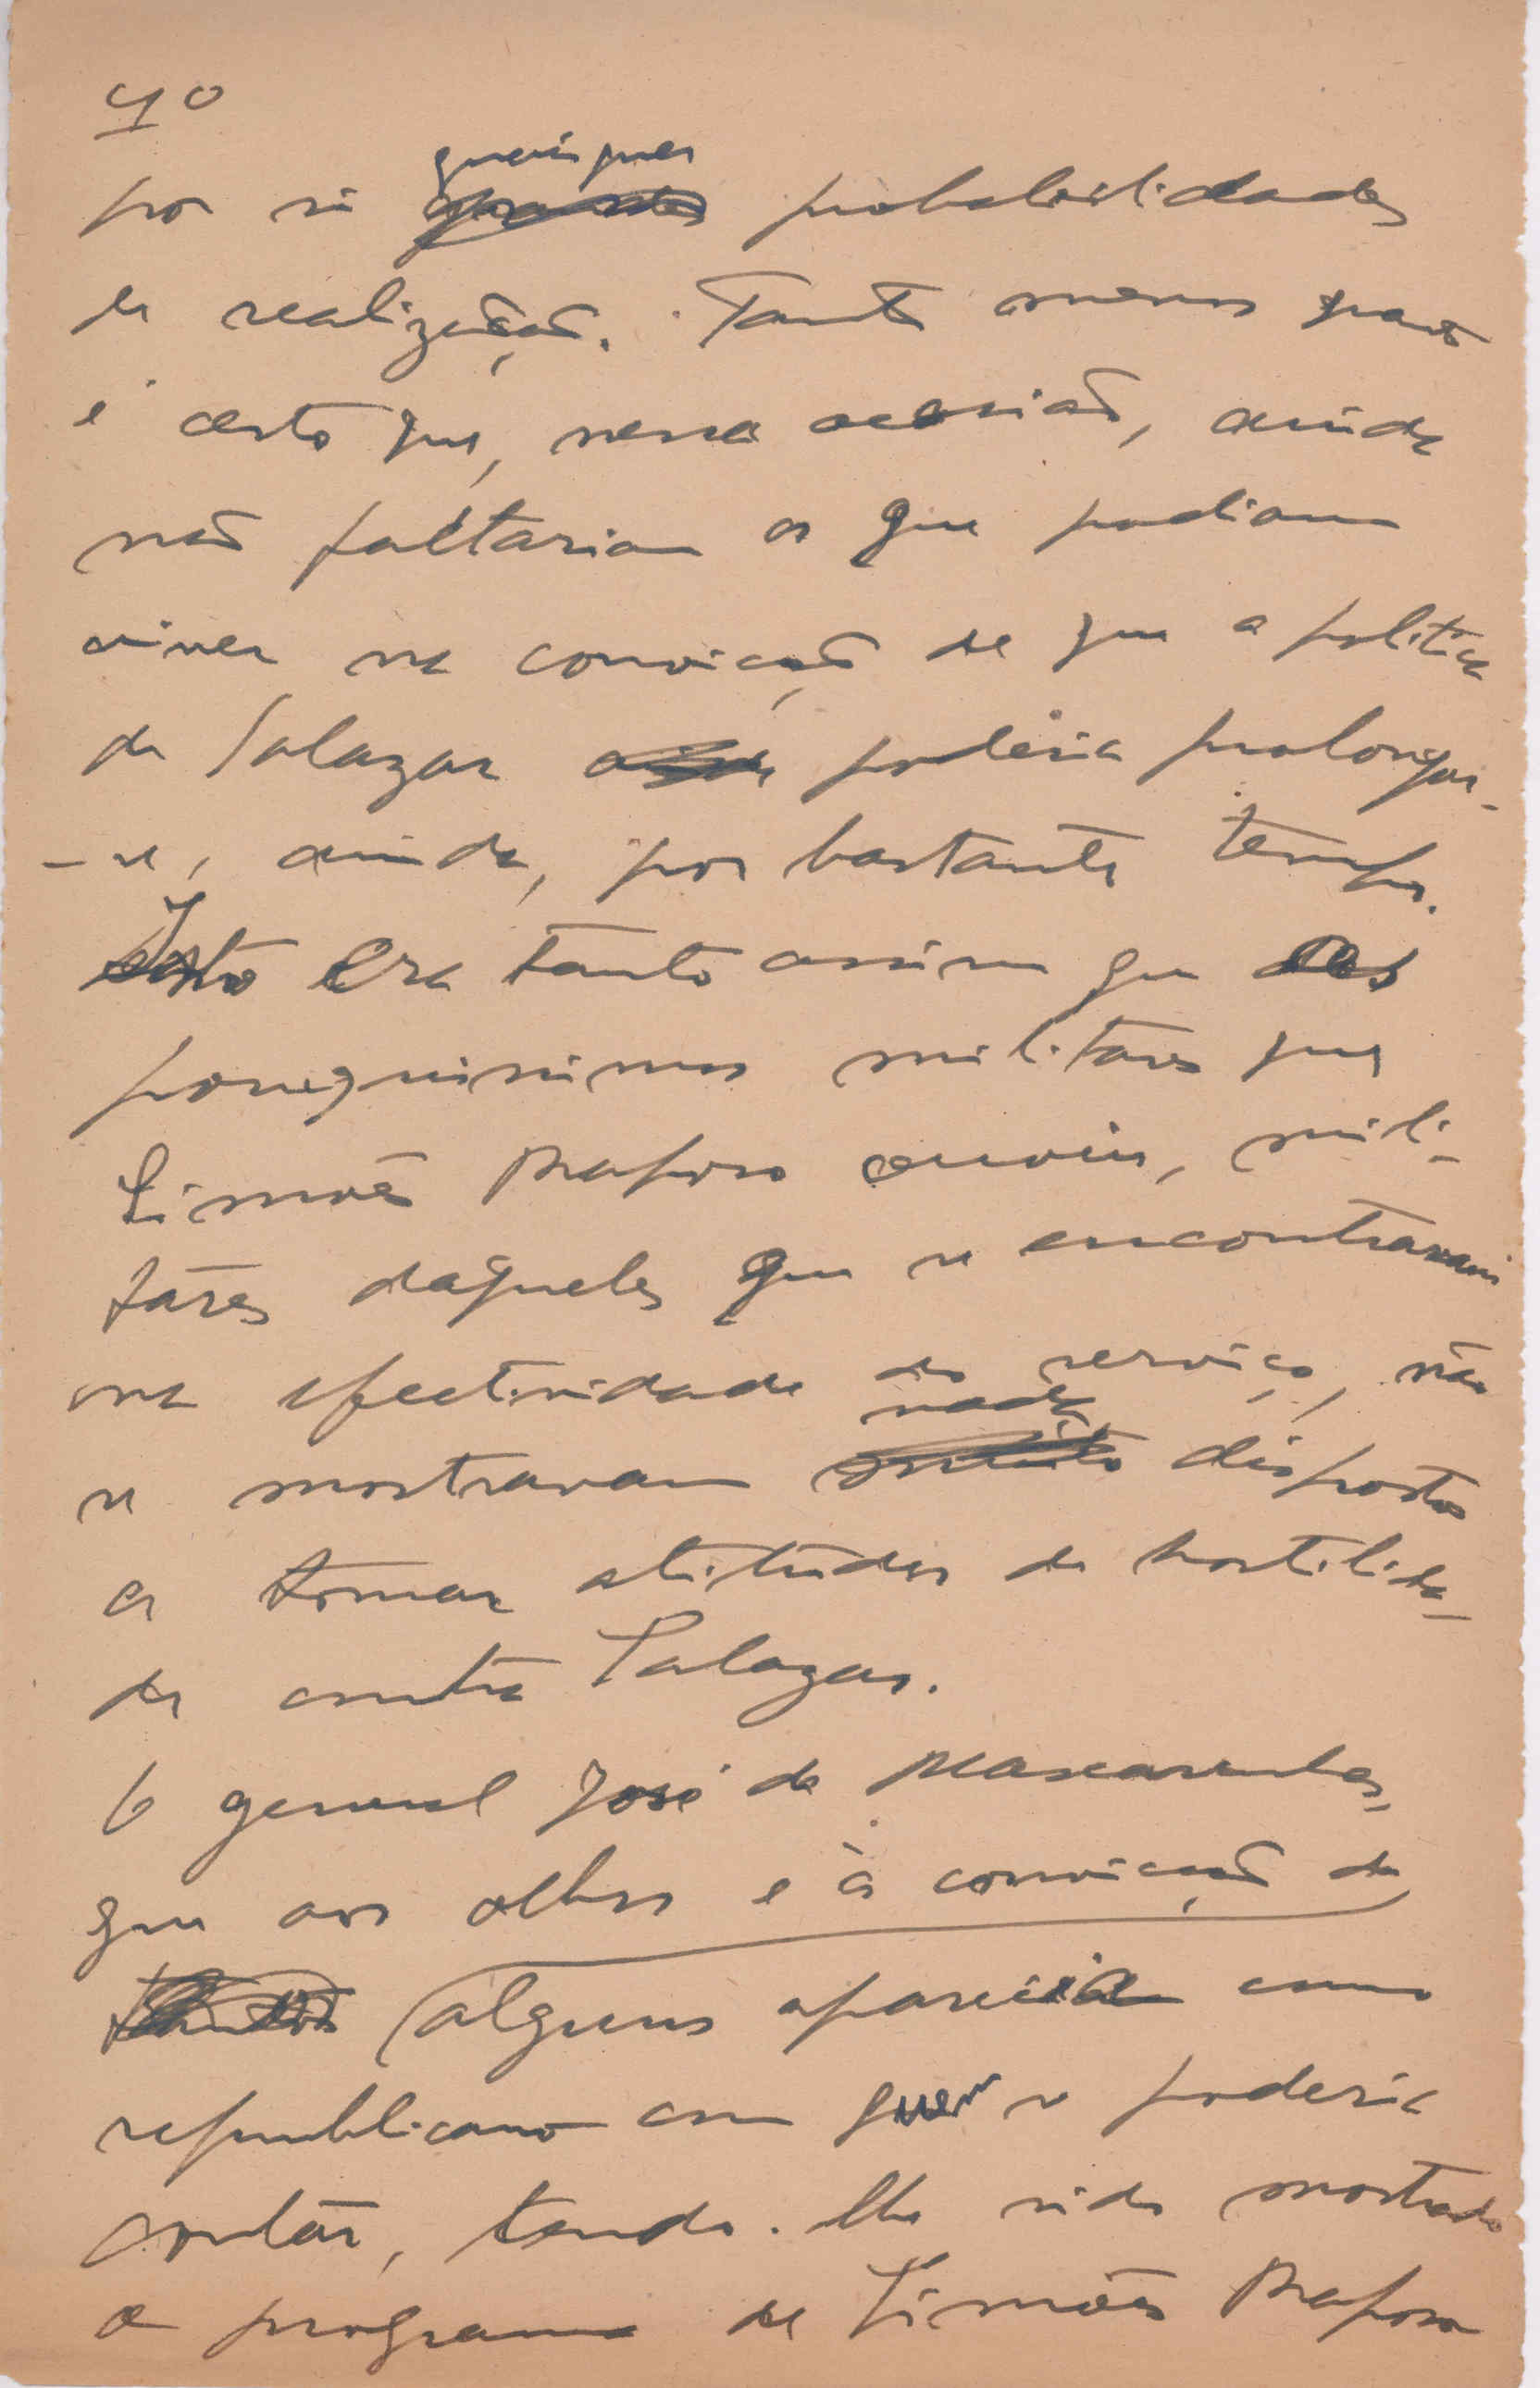 40
quaisquer
por si grandes probabilidades
de realização. Tanto menos quanto
é certo que, nessa ocasião, ainda
não faltariam os que podiam
viver na convicção de que a politica
de Salazar poderia prolongar-
-se, ainda, por bastante tempo.
Isto era tanto assim que os
pouquissimos militares que
Simões Raposo ouviu, mili-
tares daqueles que se encontravam
na efectividade do serviço, não
nada
se mostravam muito dispostos
a tomar atitudes de hostilida-
de contra Salazar.
O general José de Mascarenhas,
que aos olhos e à convicção de
alguns aparecia como
republicano com quem se poderia
contar, tendo-lhe sido mostrado
o programa de Simões Raposo